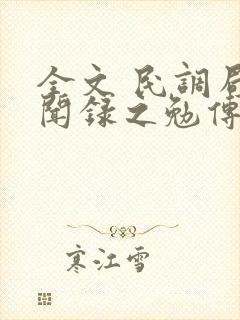 全文 民調局
聞録之勉傳
寒江雪